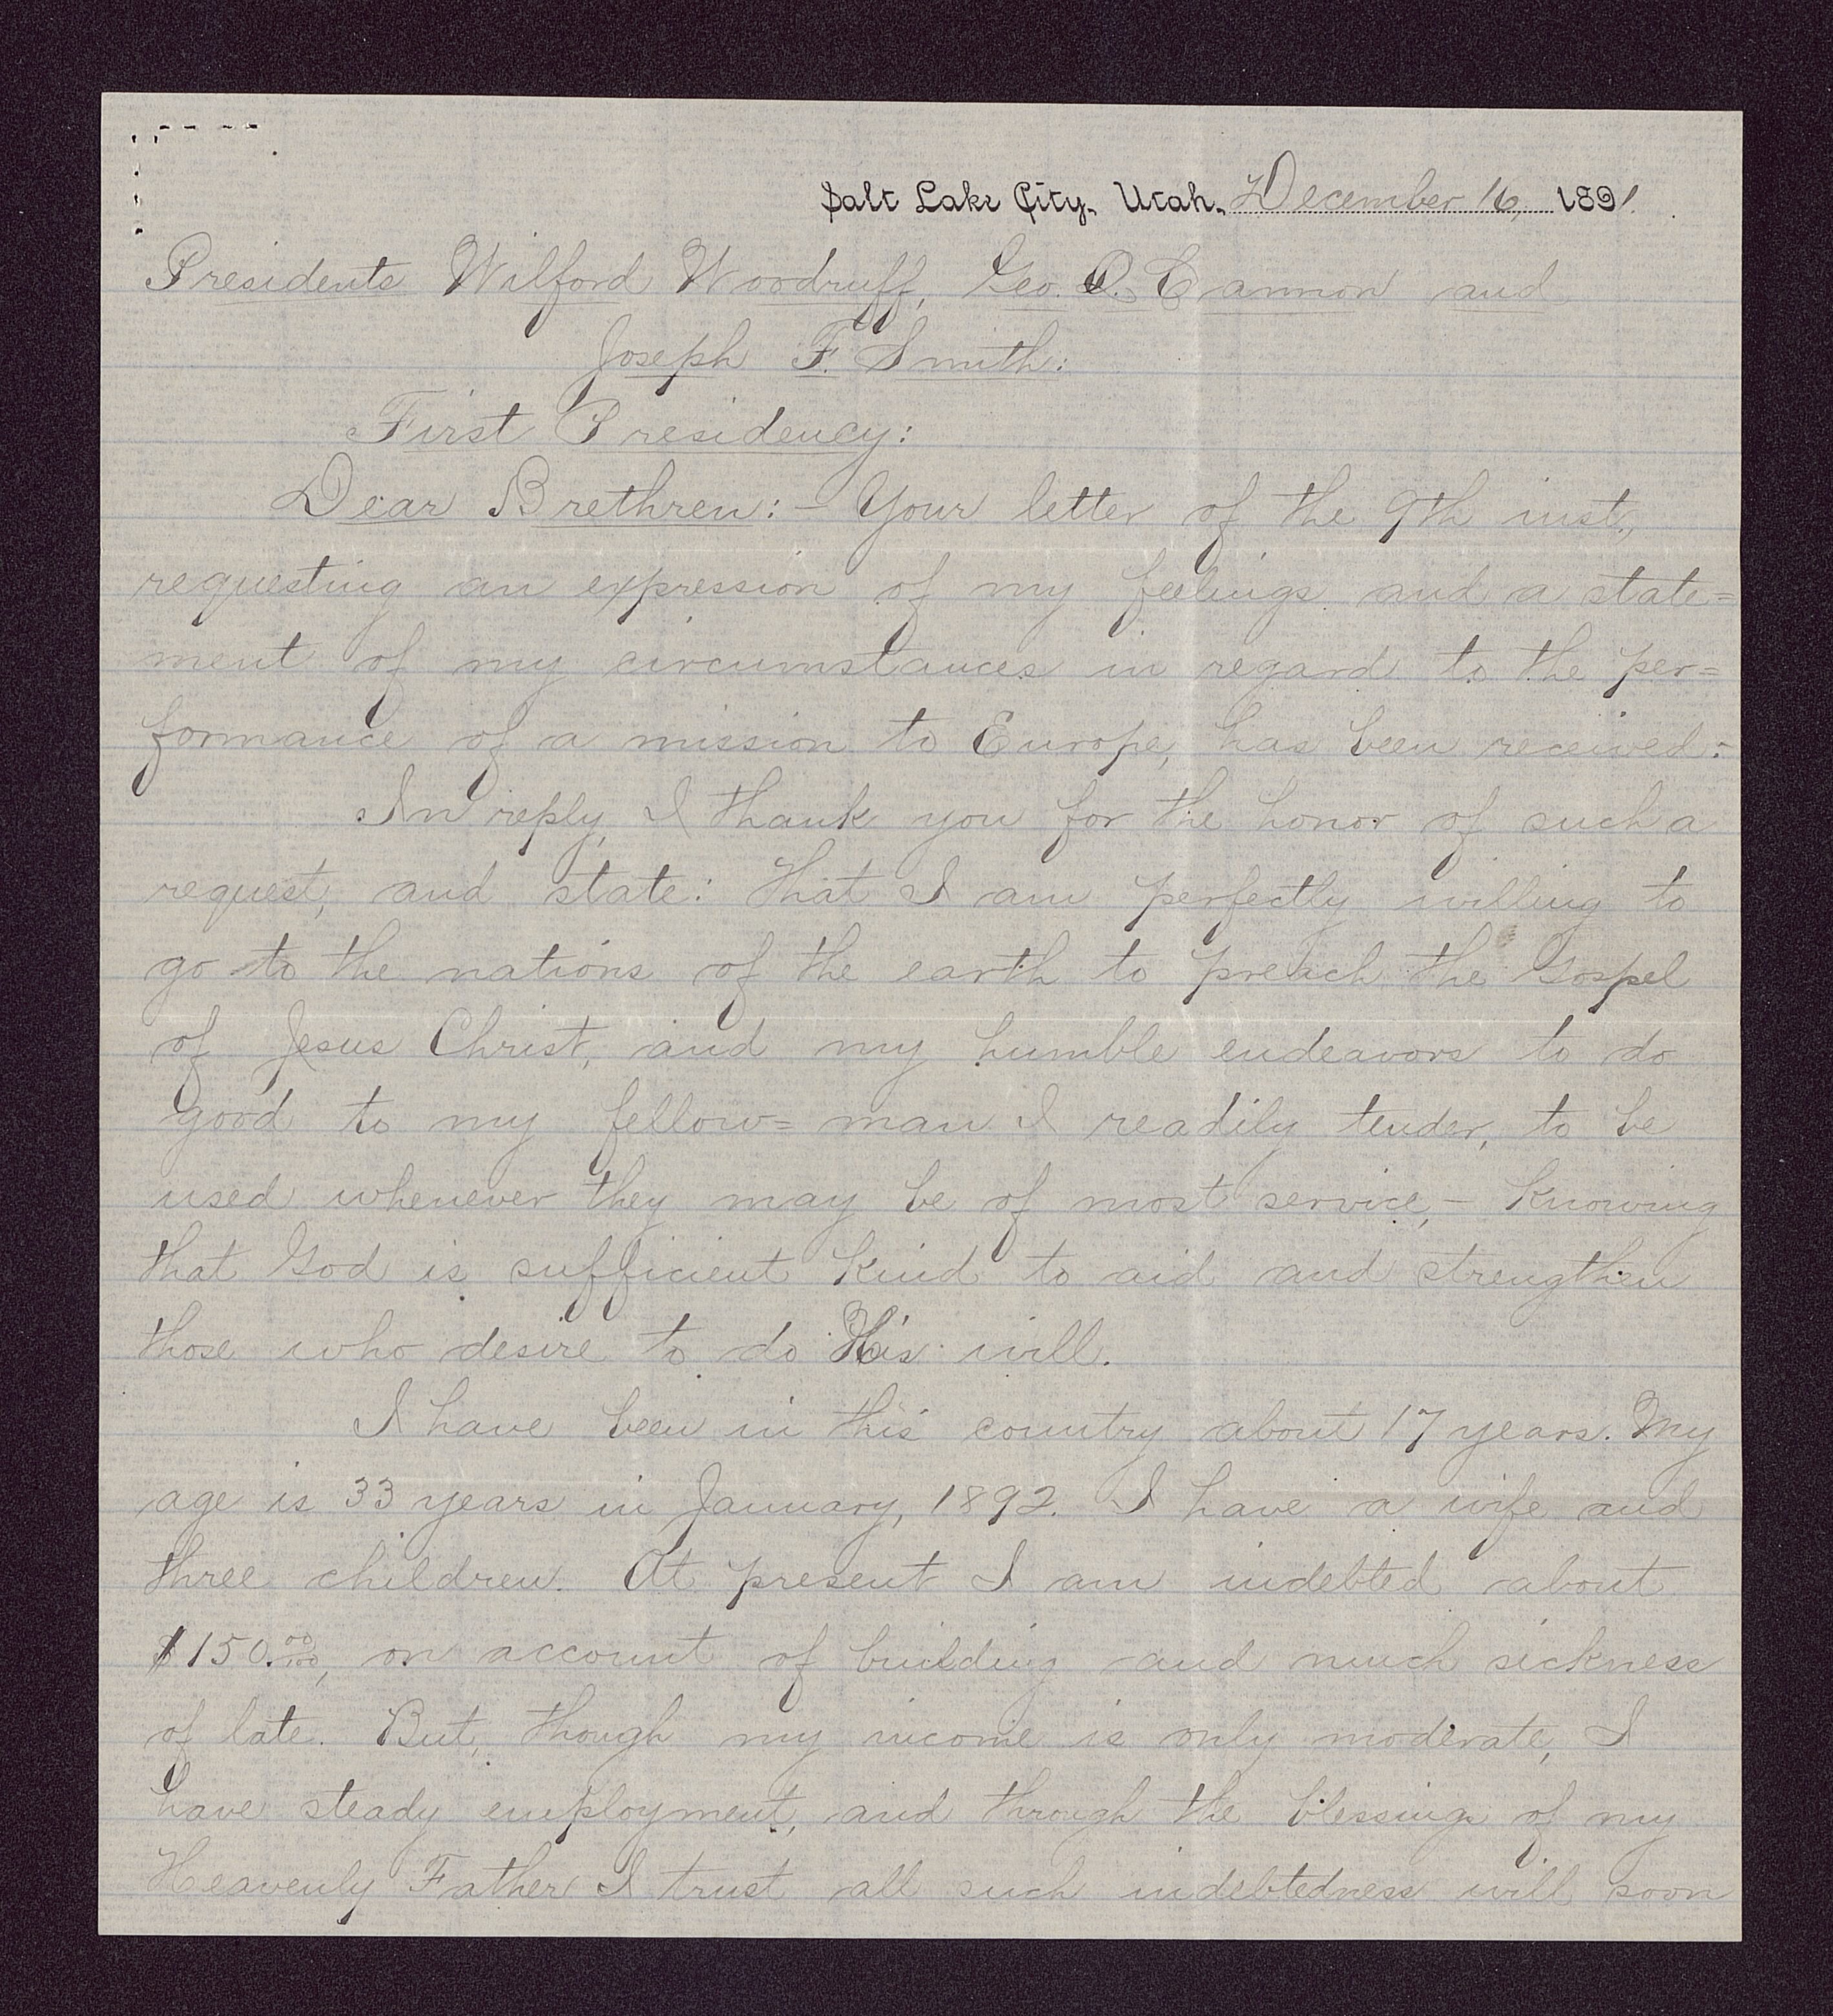 Salt Lake City, Utah, December 16, 1891.
Presidents Wilford Woodruff, Geo. Q. Cannon and
Joseph F. Smith:
First Presidency:
Dear Brethren:- Your letter of the 9th inst.,
requesting an expression of my feelings and a state=
ment of my circumstances in regard to the per=
formance of a mission to Europe, has been received:-
In reply, I thank you for the honor of such a
request, and state: That I am perfectly willing to
go to the nations of the earth to preach the Gospel
of Jesus Christ, and my humble endeavors to do
good to my fellow=man I readily tender, to be
used whenever they may be of most service,- Knowing
that God is sufficient kind to aid and strengthen
those who desire to do His will.
I have been in this country about 17 years. My
age is 33 years in January, 1892. I have a wife and
three children. At present I am indebted about
$150.00/100, on account of building and much sickness
of late. But, though my income is only moderate, I
have steady employment, and through the blessings of my
Heavenly Father I trust all such indebtedness will soon